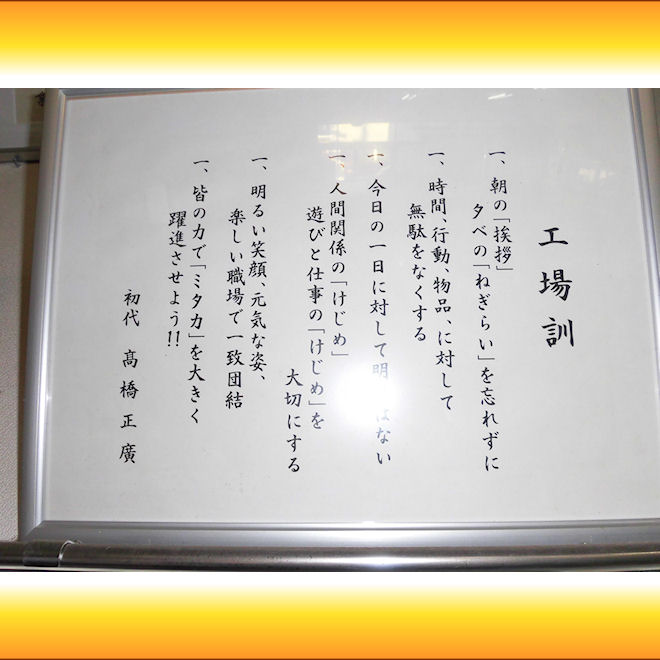 工場訓
一、朝の「挨拶」
夕べの「ねぎらい」を忘れずに
一、時間、行動、物品、に対して
無駄をなくする
一、今日の一日に対して明 はない
一、人間関係の「けじめ」
遊びと仕事の「けじめ」を
大切にする
一、明るい笑顔、元気な姿、
楽しい職場で一致団結
一、皆の力で「ミタカ」を大きく
躍進させよう!!
初代 髙橋正廣